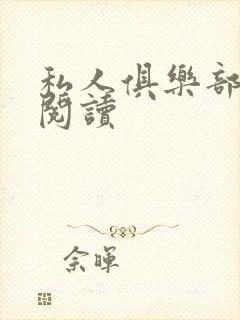 私人俱樂部
閱讀
余暉